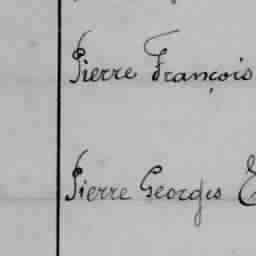 Pierre François
Pierre Georges